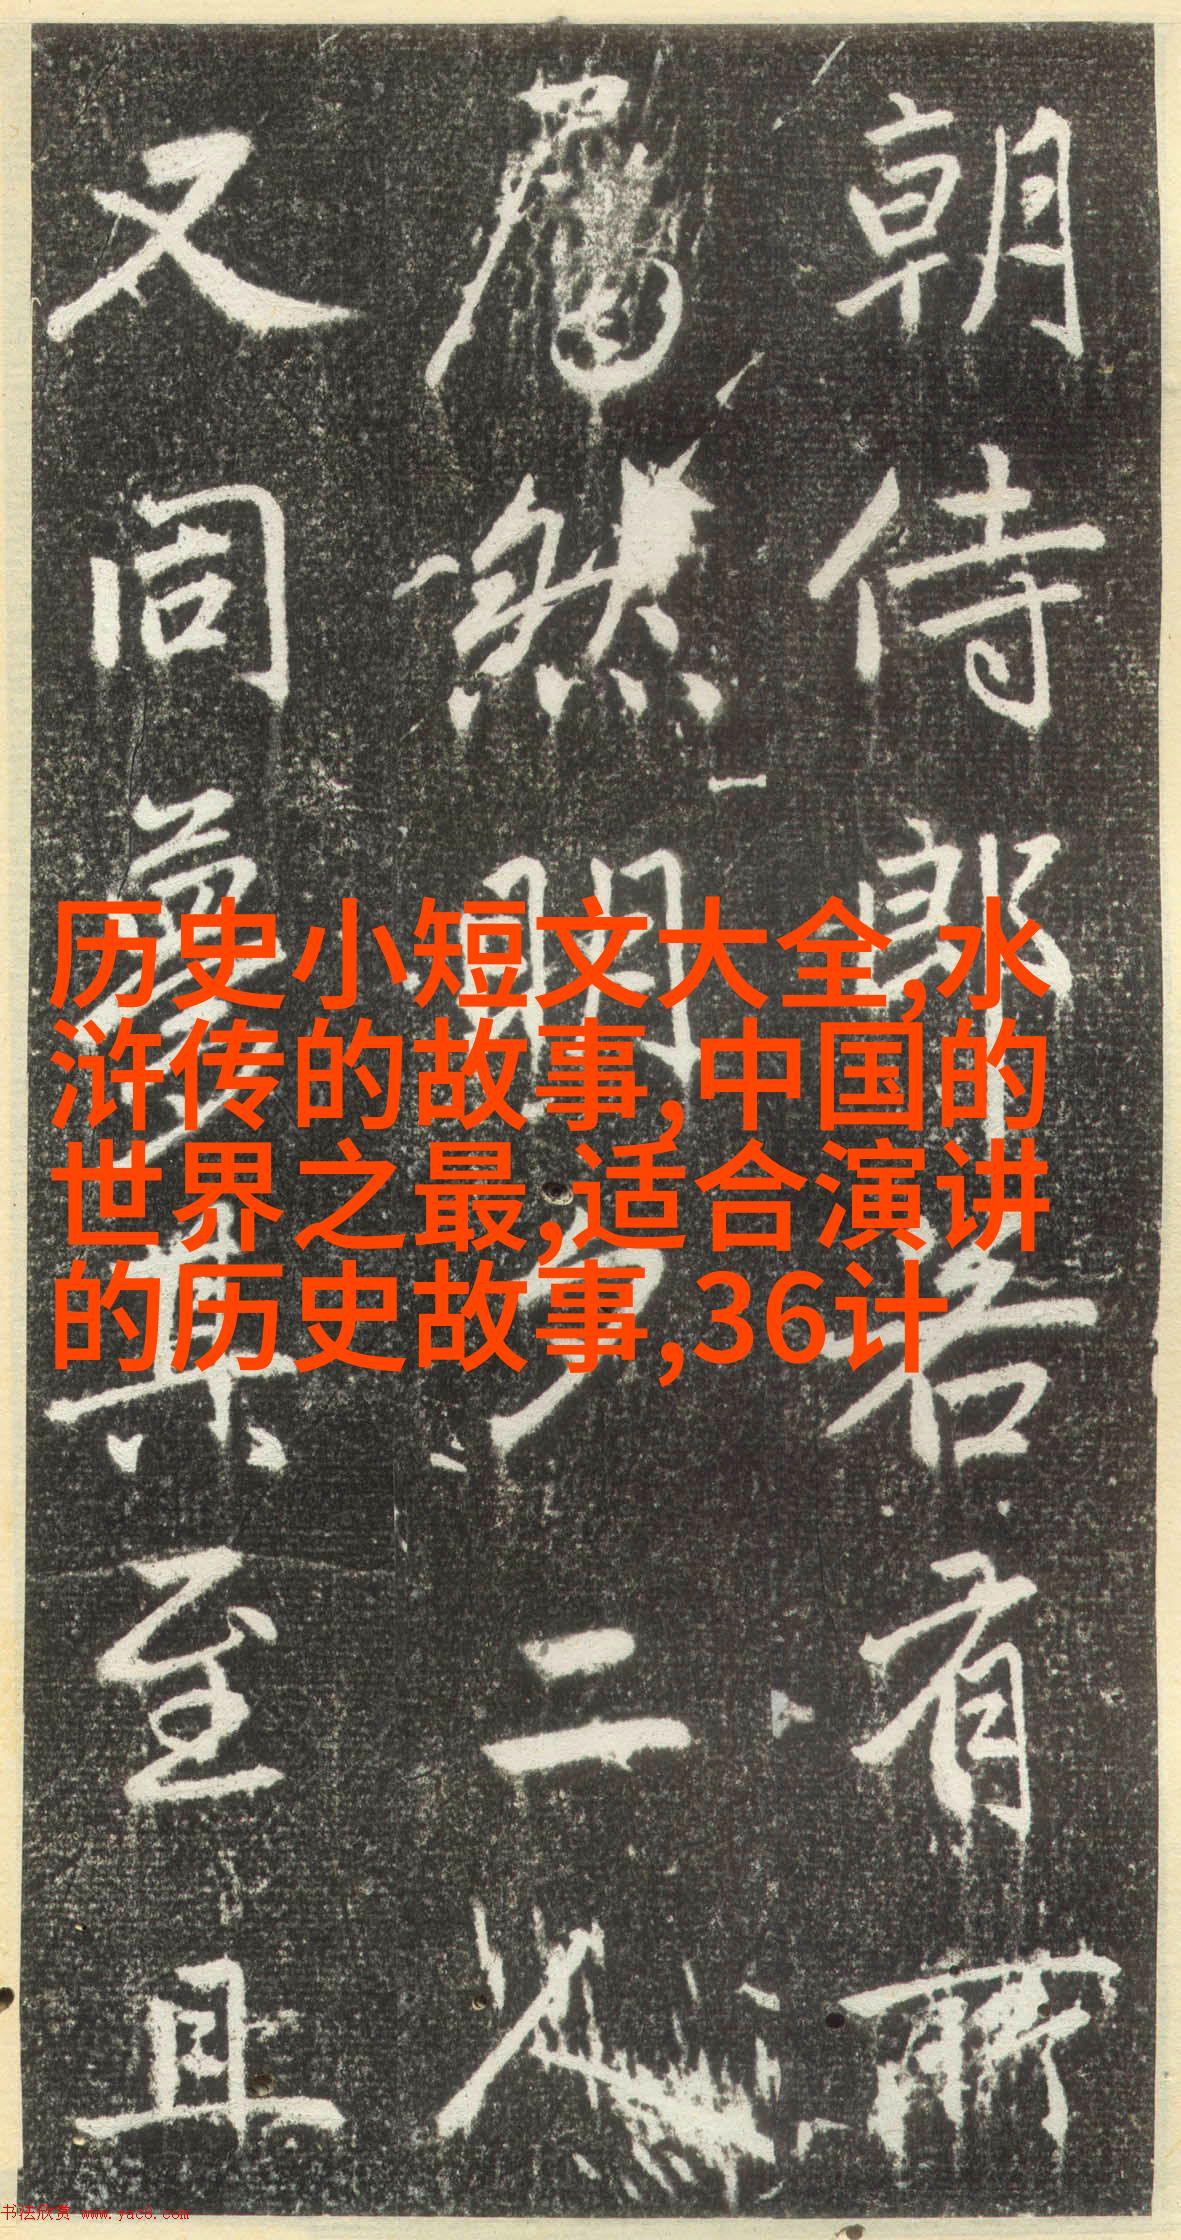 朝侍郎若有所
然明日二人
又同登其至且
历史小短文大全,水
浒传的故事,中国的
世界之最,适合演讲
的历史故事,36计
书法欣赏 www.yac8.com